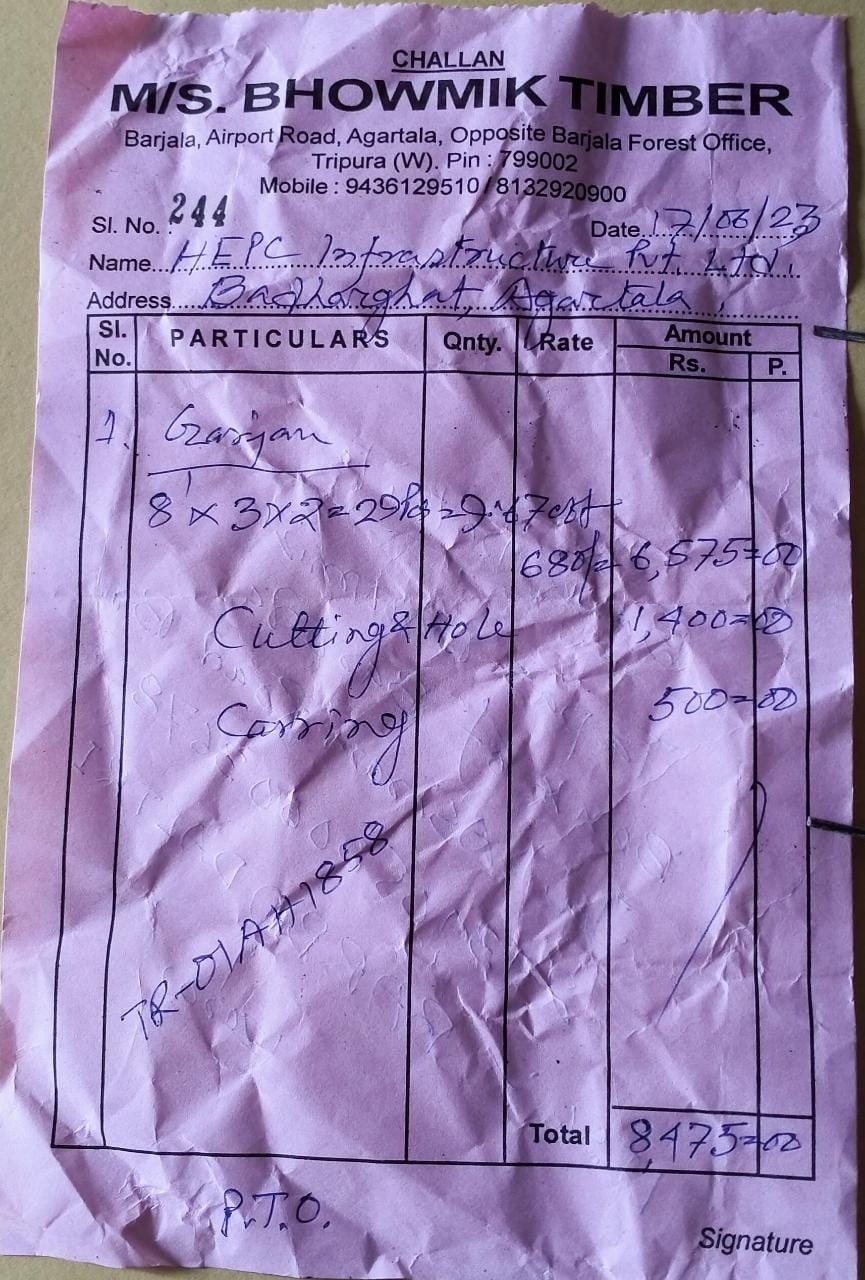 CHALLAN
M/S. BHOWMIK TIMBER
Barjala, Airport Road, Agartala, Opposite Barjala Forest Office,
Tripura (W). Pin : 799002
Mobile : 9436129510 / 8132920900
Sl. No. 244 Date 17/06/23
Name HEPC Infrastructure Pvt. Ltd.
Address Badharghat, Agartala,
Sl. No. PARTICULARS Qnty. Rate Amount Rs. P.
1. Garjan
8' x 3 x 2 = 29 Ps = 9.67 cft
680/= 6,575=00
Cutting & Hole 1,400=00
Carring 500=00
TR-01AH1858
Total 8,475=00
P.T.O.
Signature